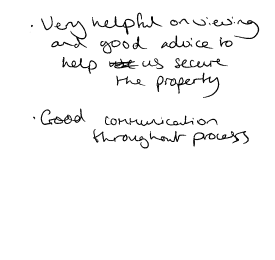 · Very helpful on viewing
and good advice to
help us secure
the property
· Good communication
throughout process